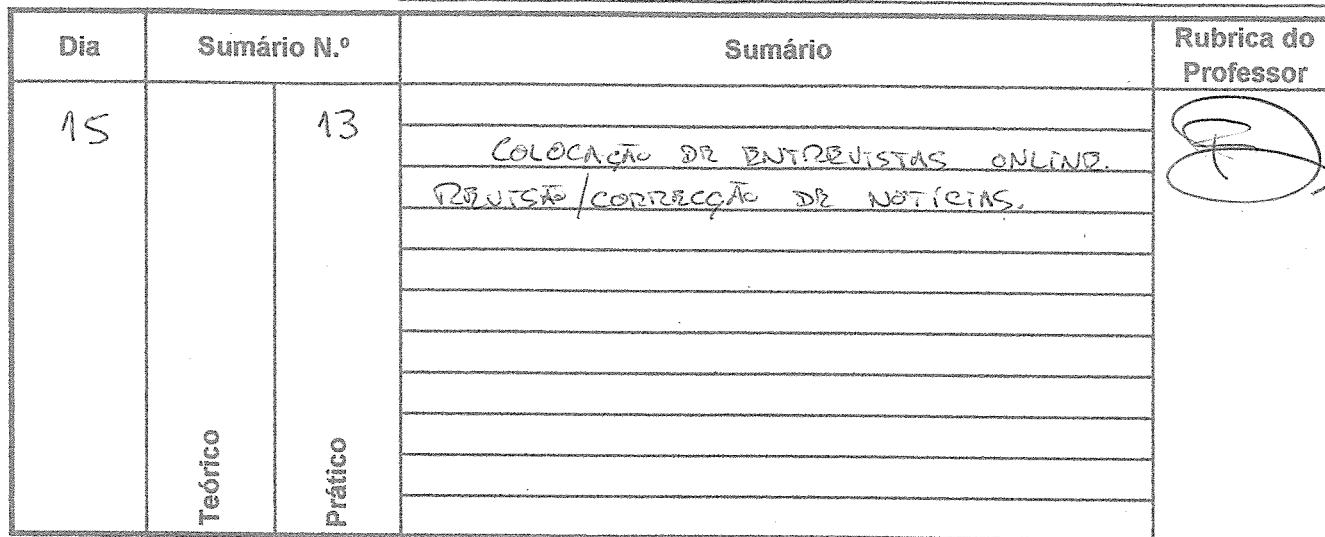 Dia Sumário N.º Sumário Rubrica do
Professor
15 13
COLOCAÇÃO DE ENTREVISTAS ONLINE.
REVISÃO/CORRECÇÃO DE NOTÍCIAS.
Teórico Prático